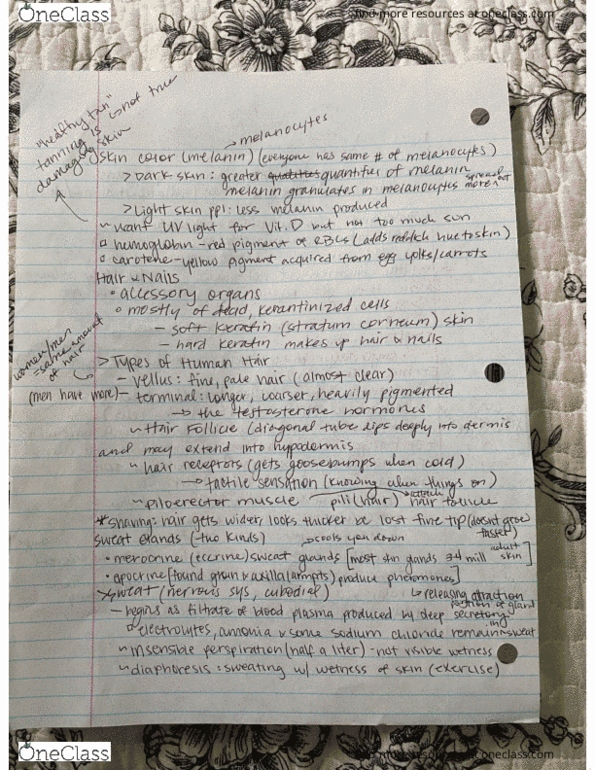 OneClass
find more resources at oneclass.com
"healthy tan"
tanning is not true
damaging skin
→ melanocytes
skin color (melanin) (everyone has same # of melanocytes)
> Dark skin: greater quantities of melanin
melanin granulates in melanocytes more spread out
> Light skin ppl: less melanin produced
~ want UV light for Vit. D but not too much sun
hemoglobin - red pigment of RBCs (adds reddish hue to skin)
carotene - yellow pigment acquired from egg yolks/carrots
Hair & Nails
• accessory organs
• mostly of dead, kerantinized cells
- soft keratin (stratum corneum) skin
- hard keratin makes up hair & nails
women/men
= same amount
of hair
> Types of Human Hair
- vellus: fine, pale hair (almost clear)
(men have more) - terminal: longer, coarser, heavily pigmented
→ the testosterone hormones
~ Hair Follicle (diagonal tube dips deeply into dermis
and may extend into hypodermis
~ hair receptors (gets goosebumps when cold)
→ tactile sensation (knowing when things on)
~ piloerector muscle pili (hair) attach hair follicle
* shaving: hair gets wider, looks thicker bc lost fine tip (doesnt grow faster)
sweat glands (two kinds) → cools you down
• merocrine (eccrine) sweat glands [most skin glands 3-4 mill adult skin]
• apocrine [found groin & axilla (armpits) produce pheromones]
> sweat (nervous sys, cuboidal) ↳ releasing
- begins as filtrate of blood plasma produced by deep secretory portion of gland
electrolytes, ammonia & some sodium chloride remain in sweat
~ insensible perspiration (half a liter) - not visible wetness
~ diaphoresis: sweating w/ wetness of skin (exercise)
OneClass
find more resources at oneclass.com